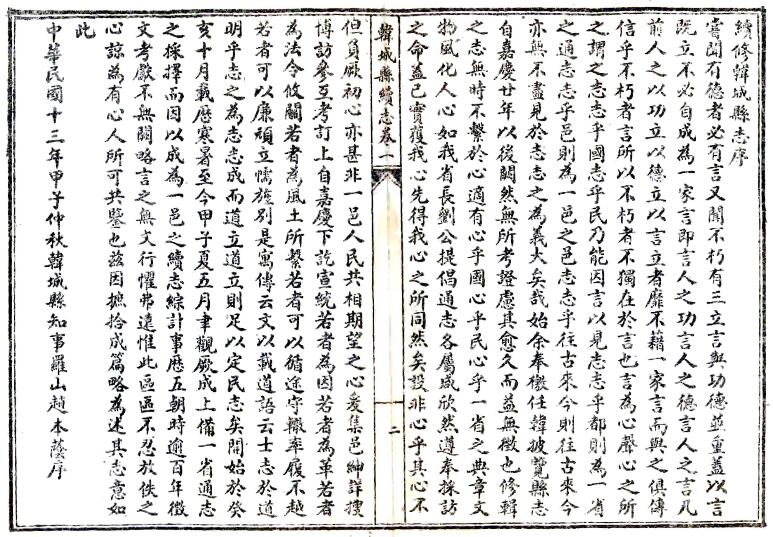 續修韓城縣志序
嘗聞有德者必有言又聞不朽有三立言與功德並重蓋以言
既立不必自成為一家言即言人之功言人之德言人之言凡
前人之以功立以德立以言立者靡不藉一家言而與之俱傳
信乎不朽者言所以不朽者不獨在於言也言為心聲心之所
之謂之志志乎國志乎民乃能因言以見志志乎都則為一省
之通志志乎邑則為一邑之邑志志乎往古來今則往古來今
亦無不盡見於志志之為義大矣哉始余奉檄任韓披覽縣志
自嘉慶廿年以後闕然無所考證慮其愈久而益無徵也修輯
之志無時不繫於心適有心乎國心乎民心乎一省之典章文
物風化人心如我省長劉公提倡通志各屬咸欣然遵奉採訪
之命蓋已實獲我心先得我心之所同然矣設非心乎其心不
韓城縣續志卷一
二
但負厥初心亦甚非一邑人民共相期望之心爰集邑紳詳搜
博訪參互考訂上自嘉慶下訖宣統若者為因若者為革若者
為法令攸關若者為風土所繫若者可以循途守轍率履不越
若者可以廉頑立懦旌別是寓傳云文以載道語云士志於道
明乎志之為志志成而道立道立則足以定民志矣開始於癸
亥十月載歷寒暑至今甲子夏五月聿觀厥成上備一省通志
之採擇而因以成為一邑之續志綜計事歷五朝時逾百年徵
文考獻不無闕略言之無文行懼弗遠惟此區區不忍放佚之
心諒為有心人所可共鑒也茲因摭拾成篇略為述其志意如
此
中華民國十三年甲子仲秋韓城縣知事羅山趙本蔭序